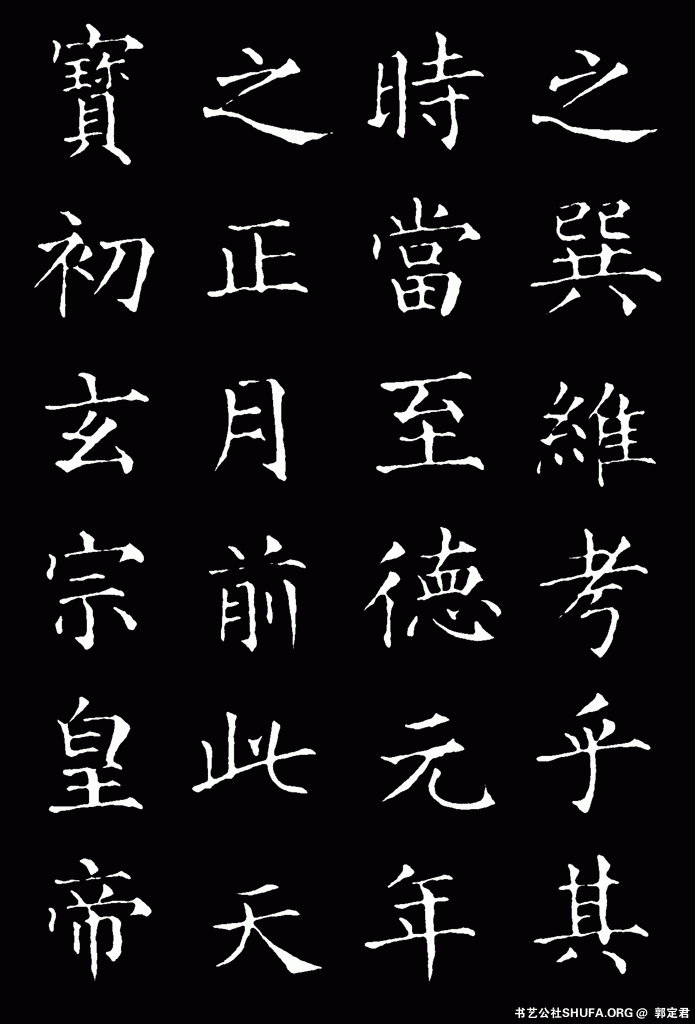 之巽維考乎其
時當至德元年
之正月前此天
寶初玄宗皇帝
书艺公社SHUFA.ORG @ 郭定君